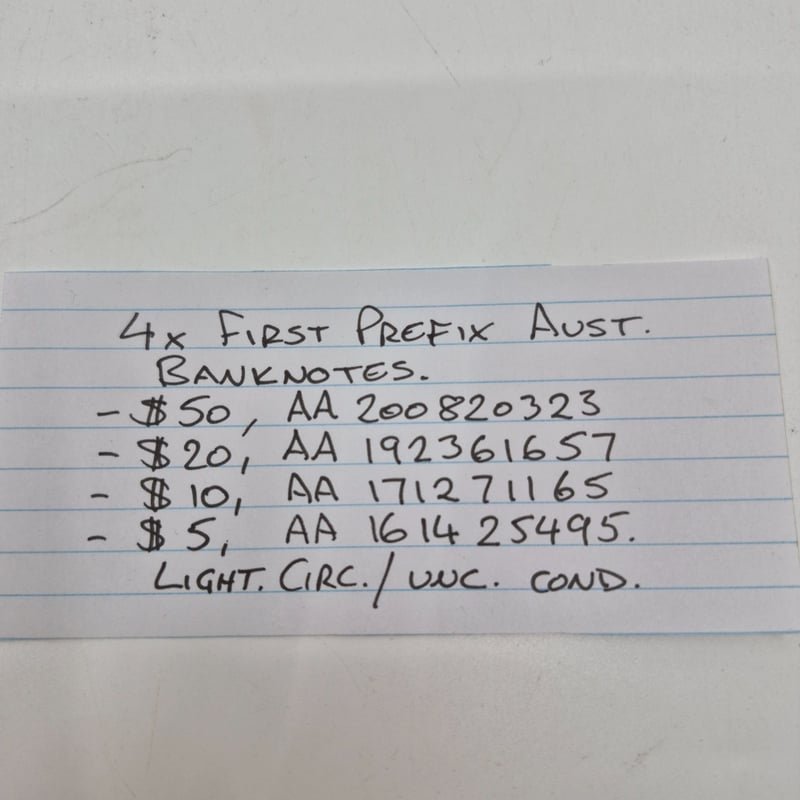 4x FIRST PREFIX AUST.
BANKNOTES.
- $50, AA 200820323
- $20, AA 192361657
- $10, AA 171271165
- $5, AA 161425495.
LIGHT. CIRC./UNC. COND.